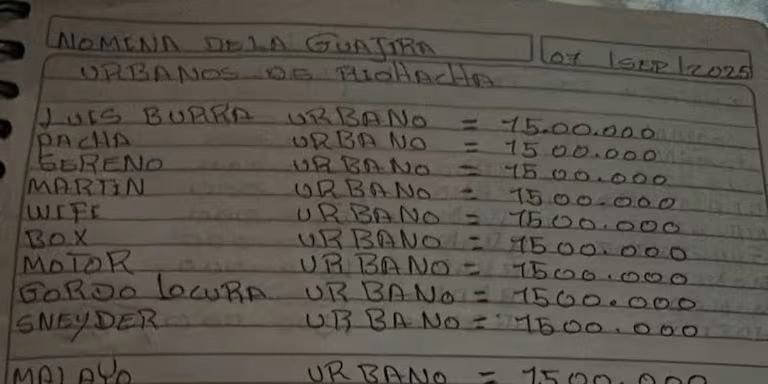 NOMENA DE LA GUAJIRA
07 |SEP|2025
URBANOS DE RIOHACHA
LUIS BURRA URBANO = 15.00.000
PACHA URBANO = 1500.000
SERENO URBANO = 1500.000
MARTIN URBANO = 1500.000
WIFI URBANO = 1500.000
BOX URBANO = 1500.000
MOTOR URBANO = 1500.000
GORDO LOCURA URBANO = 1500.000
SNEYDER URBANO = 1500.000
MALAYO URBANO = 1500.000